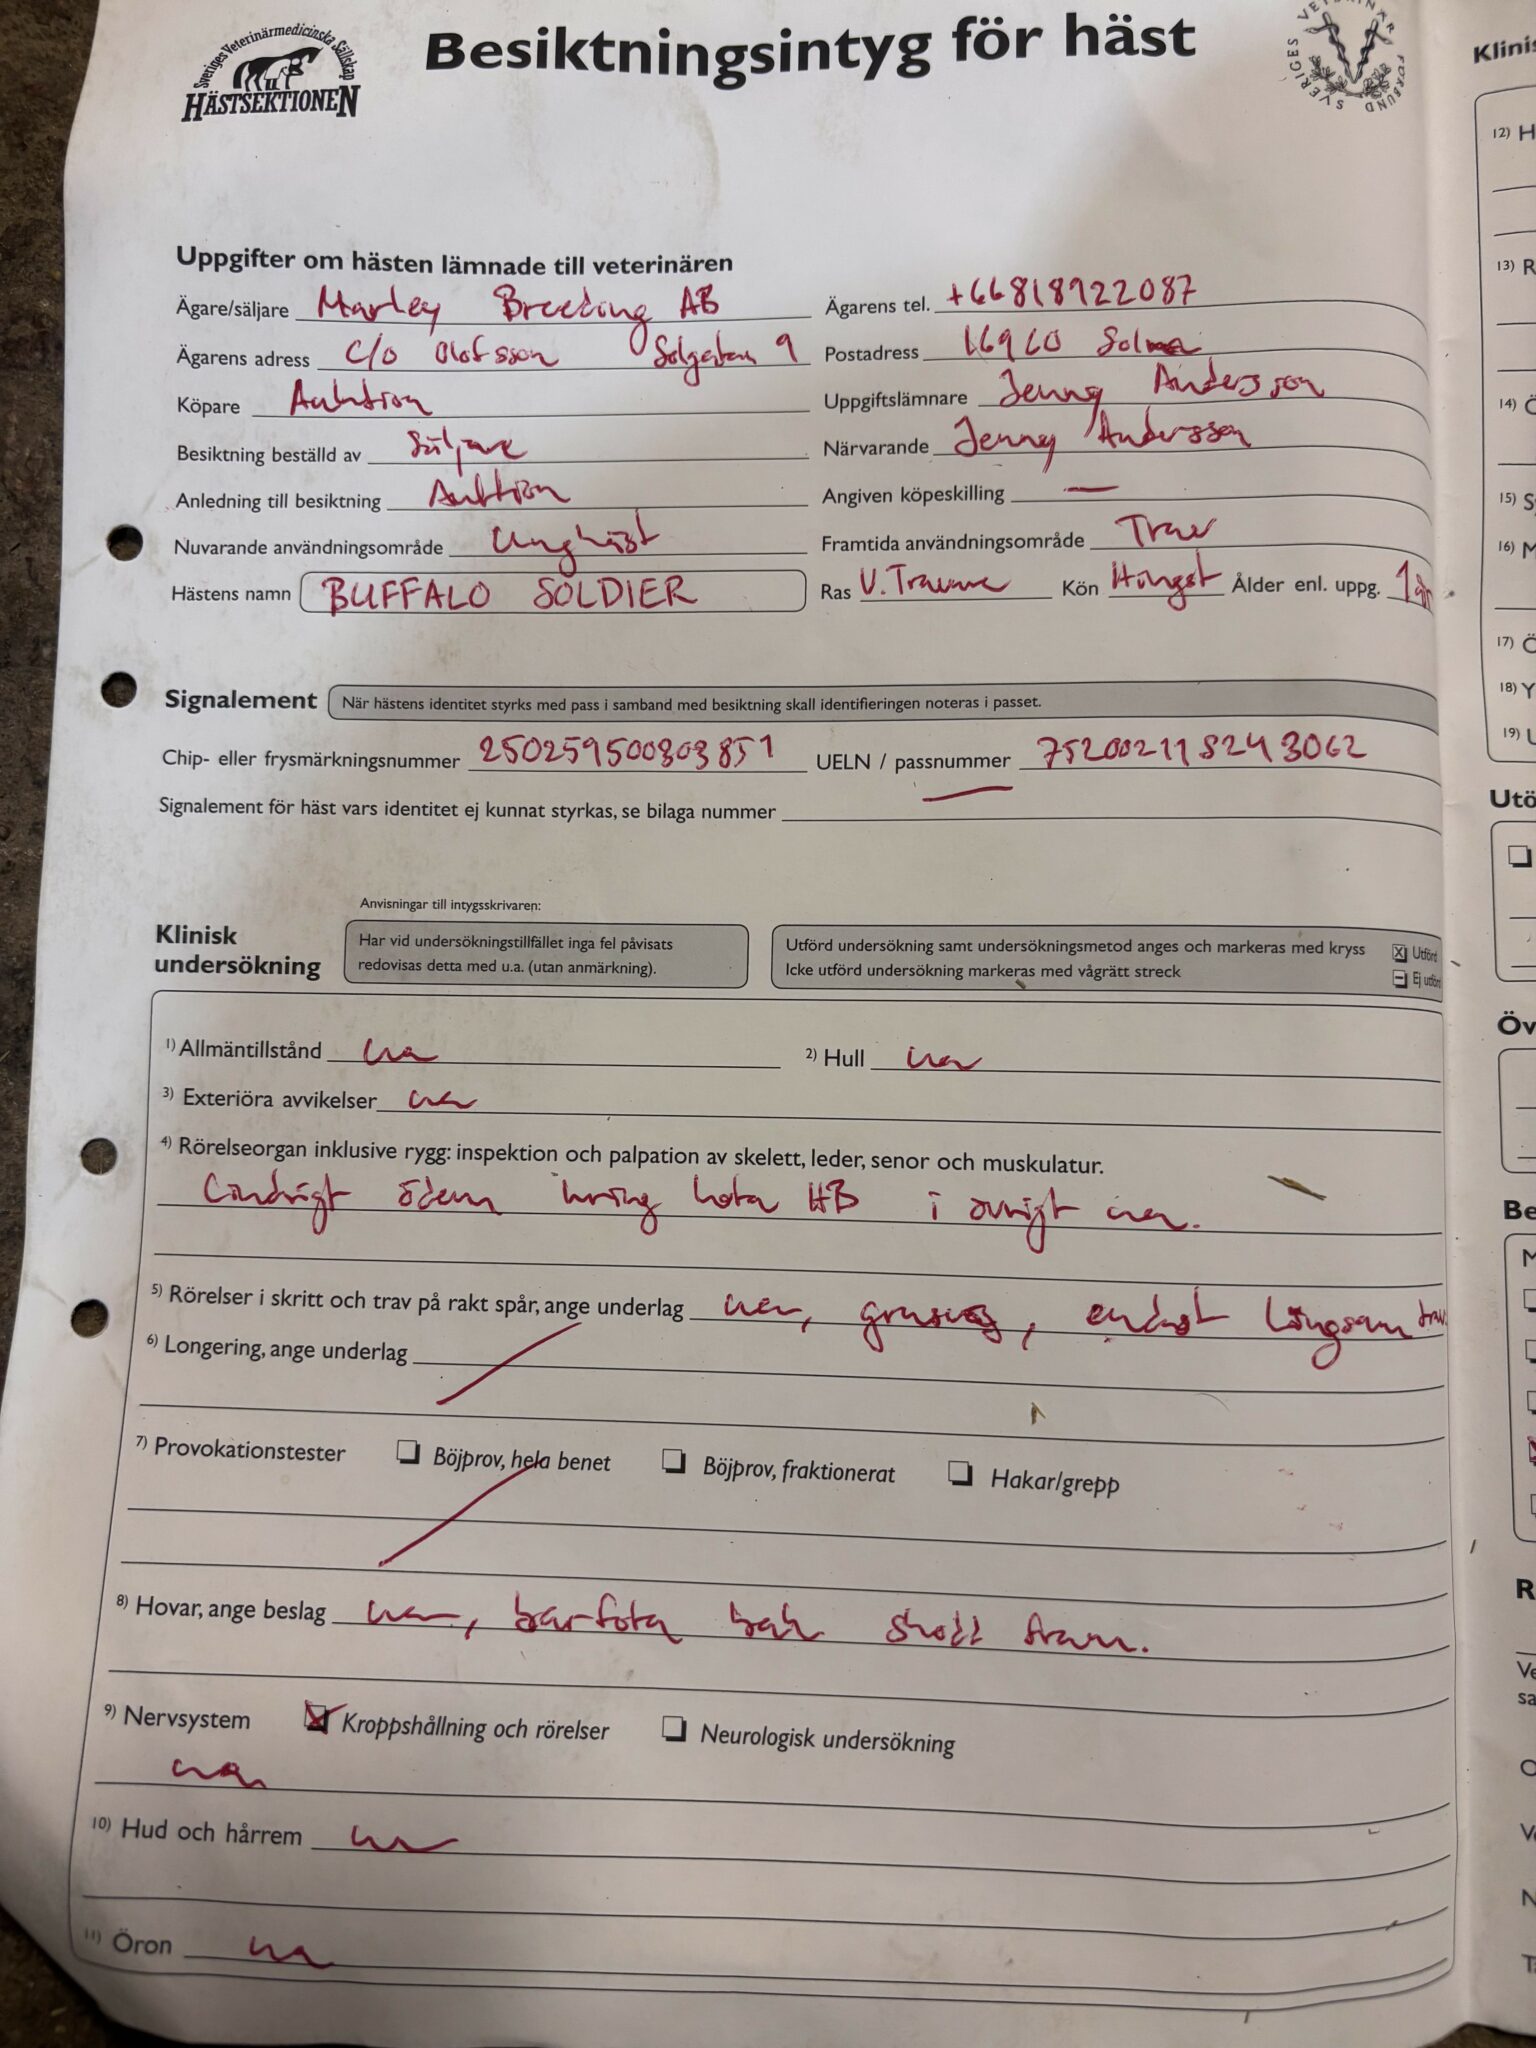 Sveriges Veterinärmedicinska Sällskap
HÄSTSEKTIONEN
Besiktningsintyg för häst
SVERIGES VETERINÄR FÖRBUND
Uppgifter om hästen lämnade till veterinären
Ägare/säljare Marley Breeding AB Ägarens tel. +66818922087
Ägarens adress c/o Olofsson Solgatan 9 Postadress 16960 Solna
Köpare Auktion Uppgiftslämnare Jenny Andersson
Besiktning beställd av Säljare Närvarande Jenny Andersson
Anledning till besiktning Auktion Angiven köpeskilling —
Nuvarande användningsområde Unghäst Framtida användningsområde Trav
Hästens namn BUFFALO SOLDIER Ras V. Travare Kön Hingst Ålder enl. uppg. 1 år
Signalement När hästens identitet styrks med pass i samband med besiktning skall identifieringen noteras i passet.
Chip- eller frysmärkningsnummer 250259500303851 UELN / passnummer 752002115243062
Signalement för häst vars identitet ej kunnat styrkas, se bilaga nummer
Anvisningar till intygsskrivaren:
Klinisk undersökning
Har vid undersökningstillfället inga fel påvisats
redovisas detta med u.a. (utan anmärkning).
Utförd undersökning samt undersökningsmetod anges och markeras med kryss Utförd
Icke utförd undersökning markeras med vågrätt streck Ej utförd
1) Allmäntillstånd ua 2) Hull ua
3) Exteriöra avvikelser ua
4) Rörelseorgan inklusive rygg: inspektion och palpation av skelett, leder, senor och muskulatur.
Lindrigt ödem kring kota HB i övrigt ua.
5) Rörelser i skritt och trav på rakt spår, ange underlag ua, grusväg, endast långsam trav
6) Longering, ange underlag
7) Provokationstester Böjprov, hela benet Böjprov, fraktionerat Hakar/grepp
8) Hovar, ange beslag ua, barfota bak skodd fram.
9) Nervsystem Kroppshållning och rörelser Neurologisk undersökning
ua
10) Hud och hårrem ua
11) Öron ua
Klinis
12) H
13) R
14) Ö
15) S
16) M
17) Ö
18) Y
19) U
Utö
Öv
Be
M
R
Ve
sa
O
Ve
N